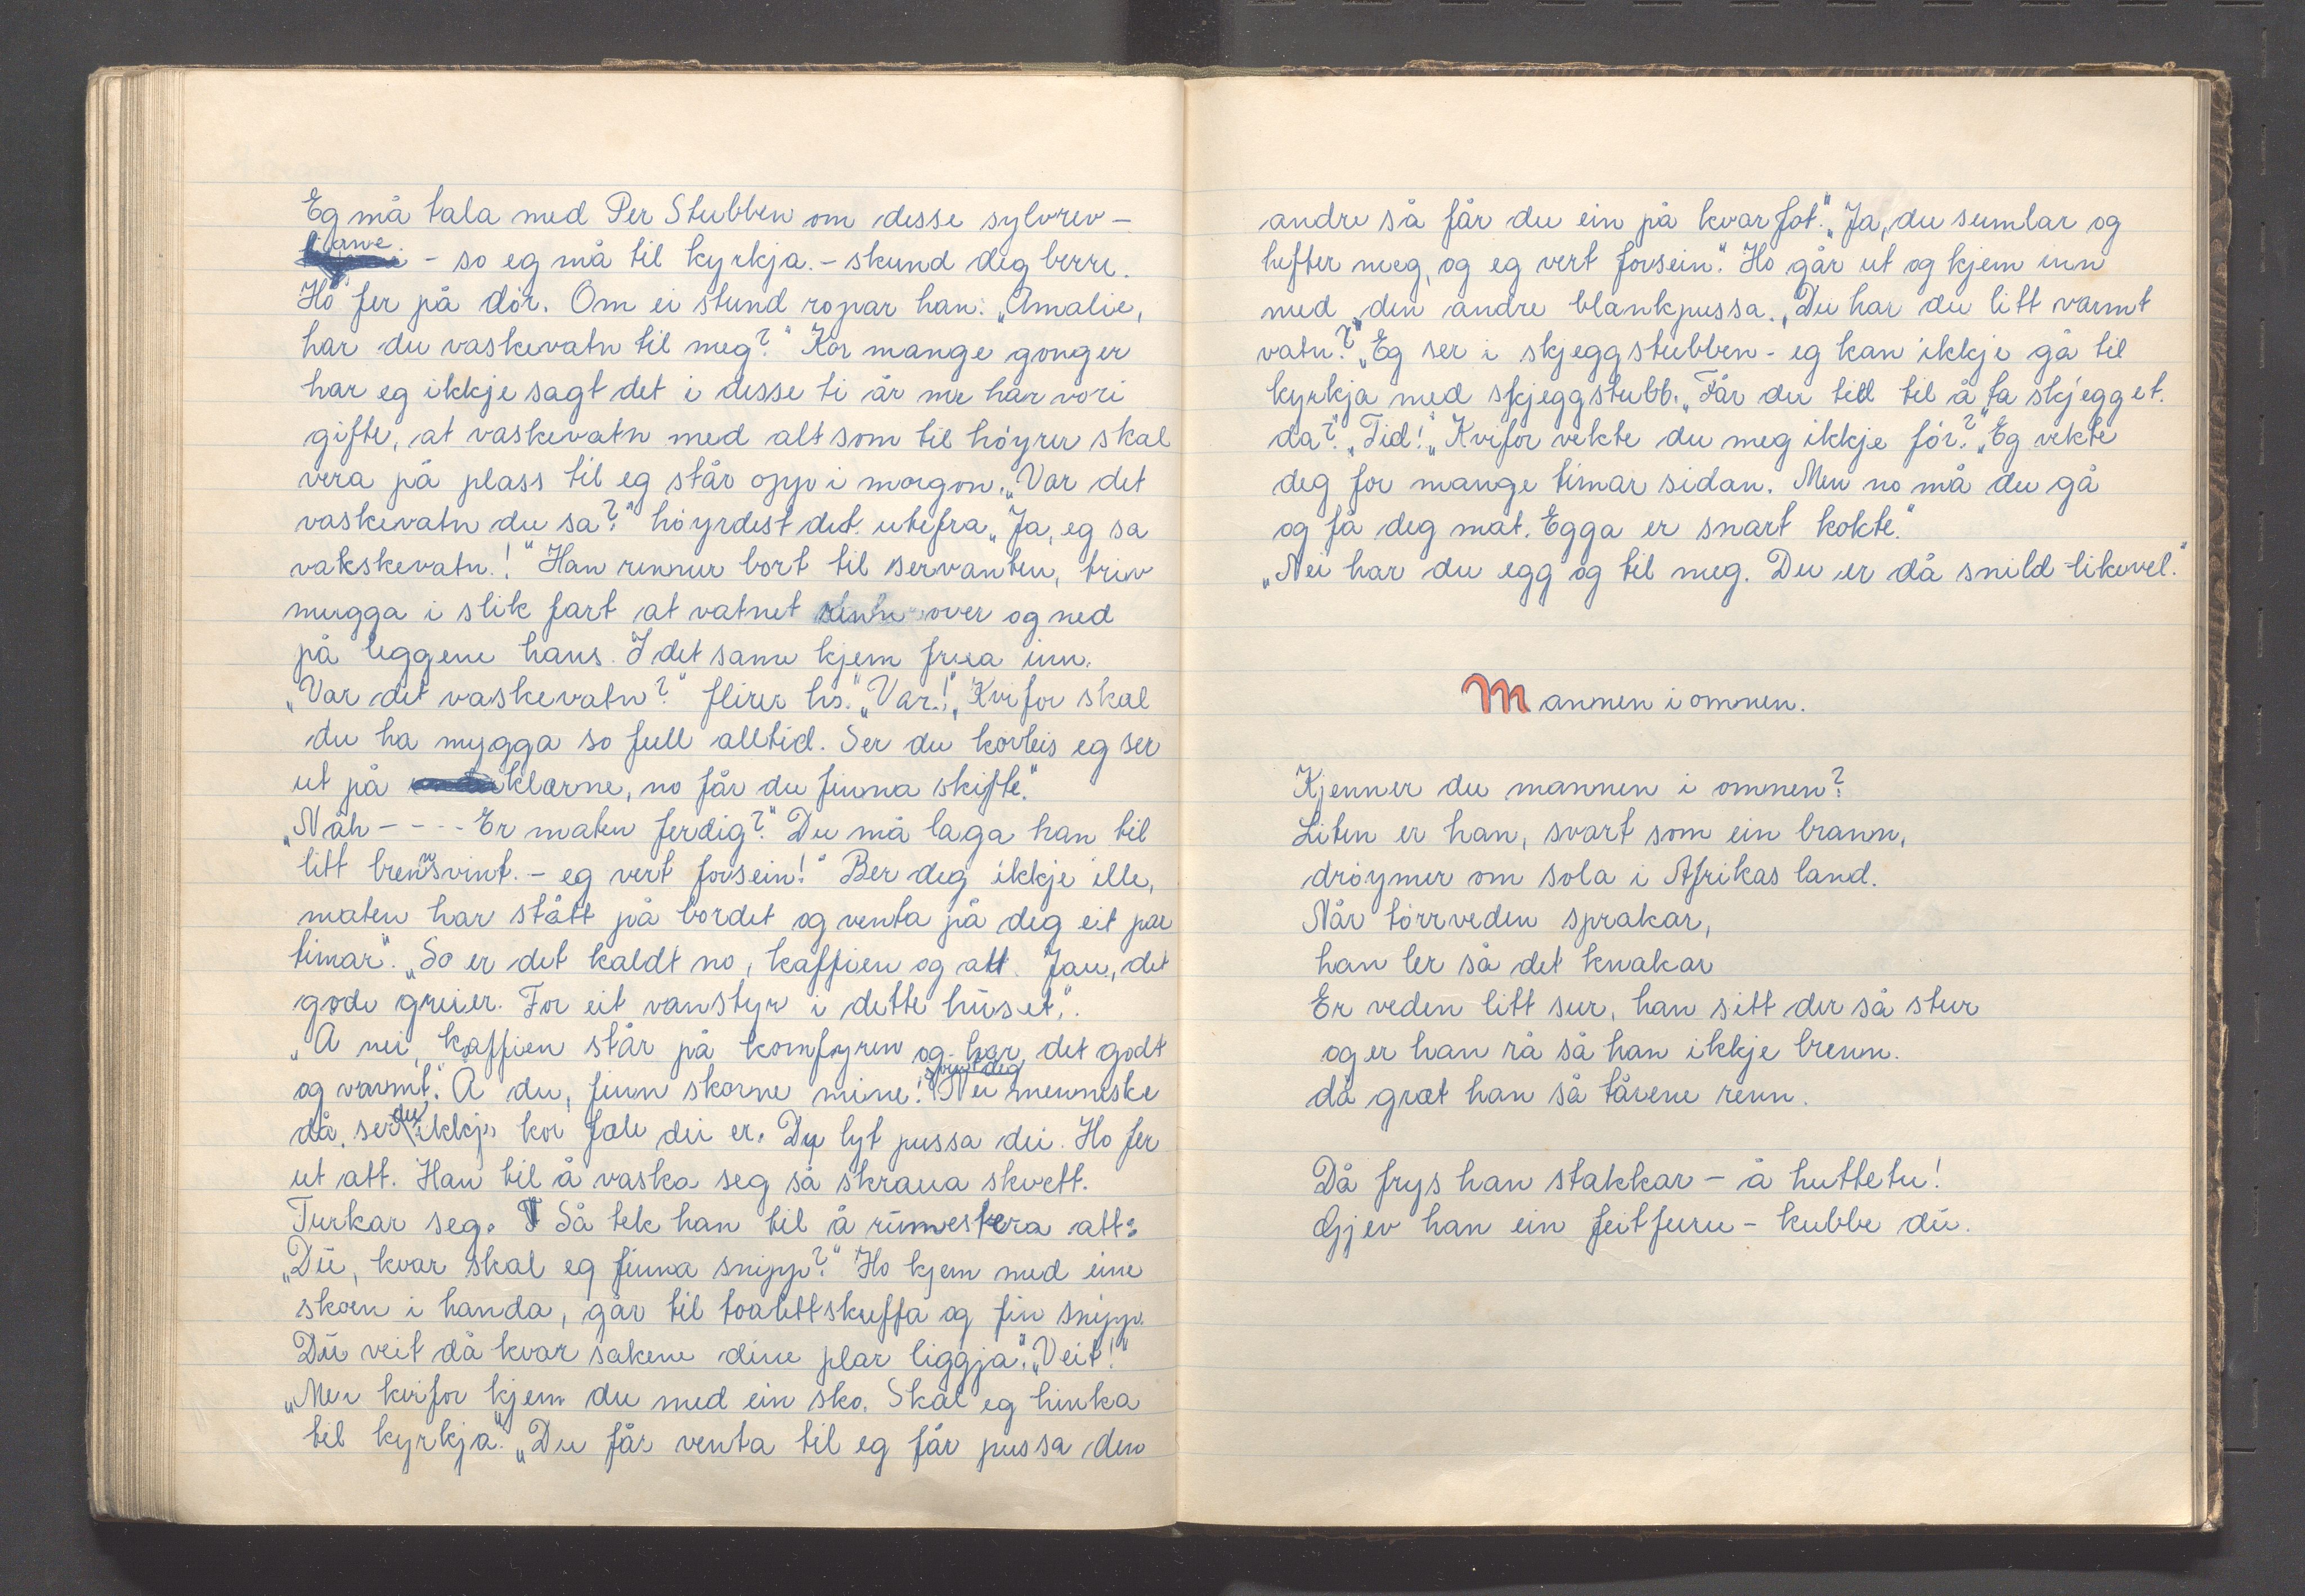 Eg må tala med Per Stubben om desse sylvrev-
arne - so eg må til kyrkja. - skund deg berre.
Ho fer på dör. Om ei stund ropar han: „Amalie,
har du vaskevatn til meg?" Kor mange gonger
har eg ikkje sagt det i desse ti år me har vori
gifte, at vaskevatn med alt som til höyrer skal
vera på plass til eg står opp i morgon. „Var det
vaskevatn du sa?" höyrdest det utefra „Ja, eg sa
vakskevatn.!" Han rennur bort til servanten, triv
mugga i slik fart at vatnet renn over og ned
på leggene hans. I det same kjem frua inn.
„Var det vaskevatn?" flirer ho. „Var!" „Kvifor skal
du ha mygga so full alltid. Ser du korleis eg ser
ut på klærne, no får du finna skifte."
„Nåh - - - - Er maten ferdig?" Du må laga han til
litt brennsvint. - eg vert forsein!" Ber deg ikkje ille,
maten har stått på bordet og venta på deg eit par
timar". „So er det kaldt no, kaffien og alt. Jau, det
gode greier. For eit vanstyr i dette huset.".
„Å nei, kaffien står på komfyren og har det godt
og varmt." Å du, finn skorne mine! skund deg "Nei menneske
då, ser du ikkje kor fæle dei er. Du lyt pussa dei. Ho fer
ut att. Han til å vaska seg så skraua skvett.
Turkar seg. Så tek han til å rumestera att:
„Du, kvar skal eg finna snipp?" Ho kjem med eine
skoen i handa, går til toalettskuffa og fin snipp.
Du veit då kvar sakene dine plar liggja". „Veit!"
„Men kvifor kjem du med ein sko. Skal eg hinka
til kyrkja." „Du får venta til eg får pussa den
andre så får du ein på kvar fot." „Ja, du sumlar og
hefter meg, og eg vert forsein." Ho går ut og kjem inn
med den andre blankpussa. „Du har du litt varmt
vatn?" „Eg ser i skjeggstubben - eg kan ikkje gå til
kyrkja med skjeggstubb. „Får du tid til å ta skjegget.
da?" „Tid!" „Kvifor vekte du meg ikkje för?" „Eg vekte
deg for mange timar sidan. Men no må du gå
og få deg mat. Egga er snart kokte."
„Nei har du egg og til meg. Du er då snild likevel."
Mannen i omnen.
Kjenner du mannen i omnen?
Liten er han, svart som ein brann,
dröymer om sola i Afrikas land.
Når törrveden sprakar,
han ler så det knakar
Er veden litt sur, han sitt der så stur
og er han rå så han ikkje brenn.
då græt han så tårene renn.
Då frys han stakkar - å huttetu!
Gjev han ein feitfuru - kubbe du.